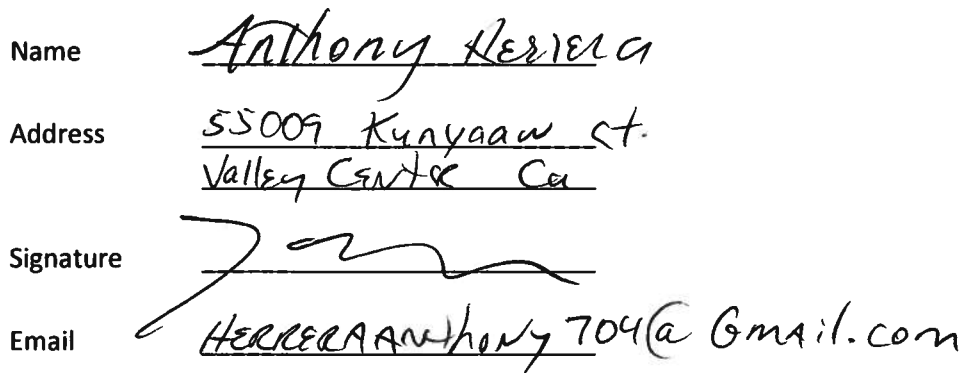 Name Anthony Herrera
Address 55009 Kunyaaw ct.
Valley Center Ca
Signature
Email HERRERAANthoNy704@Gmail.com